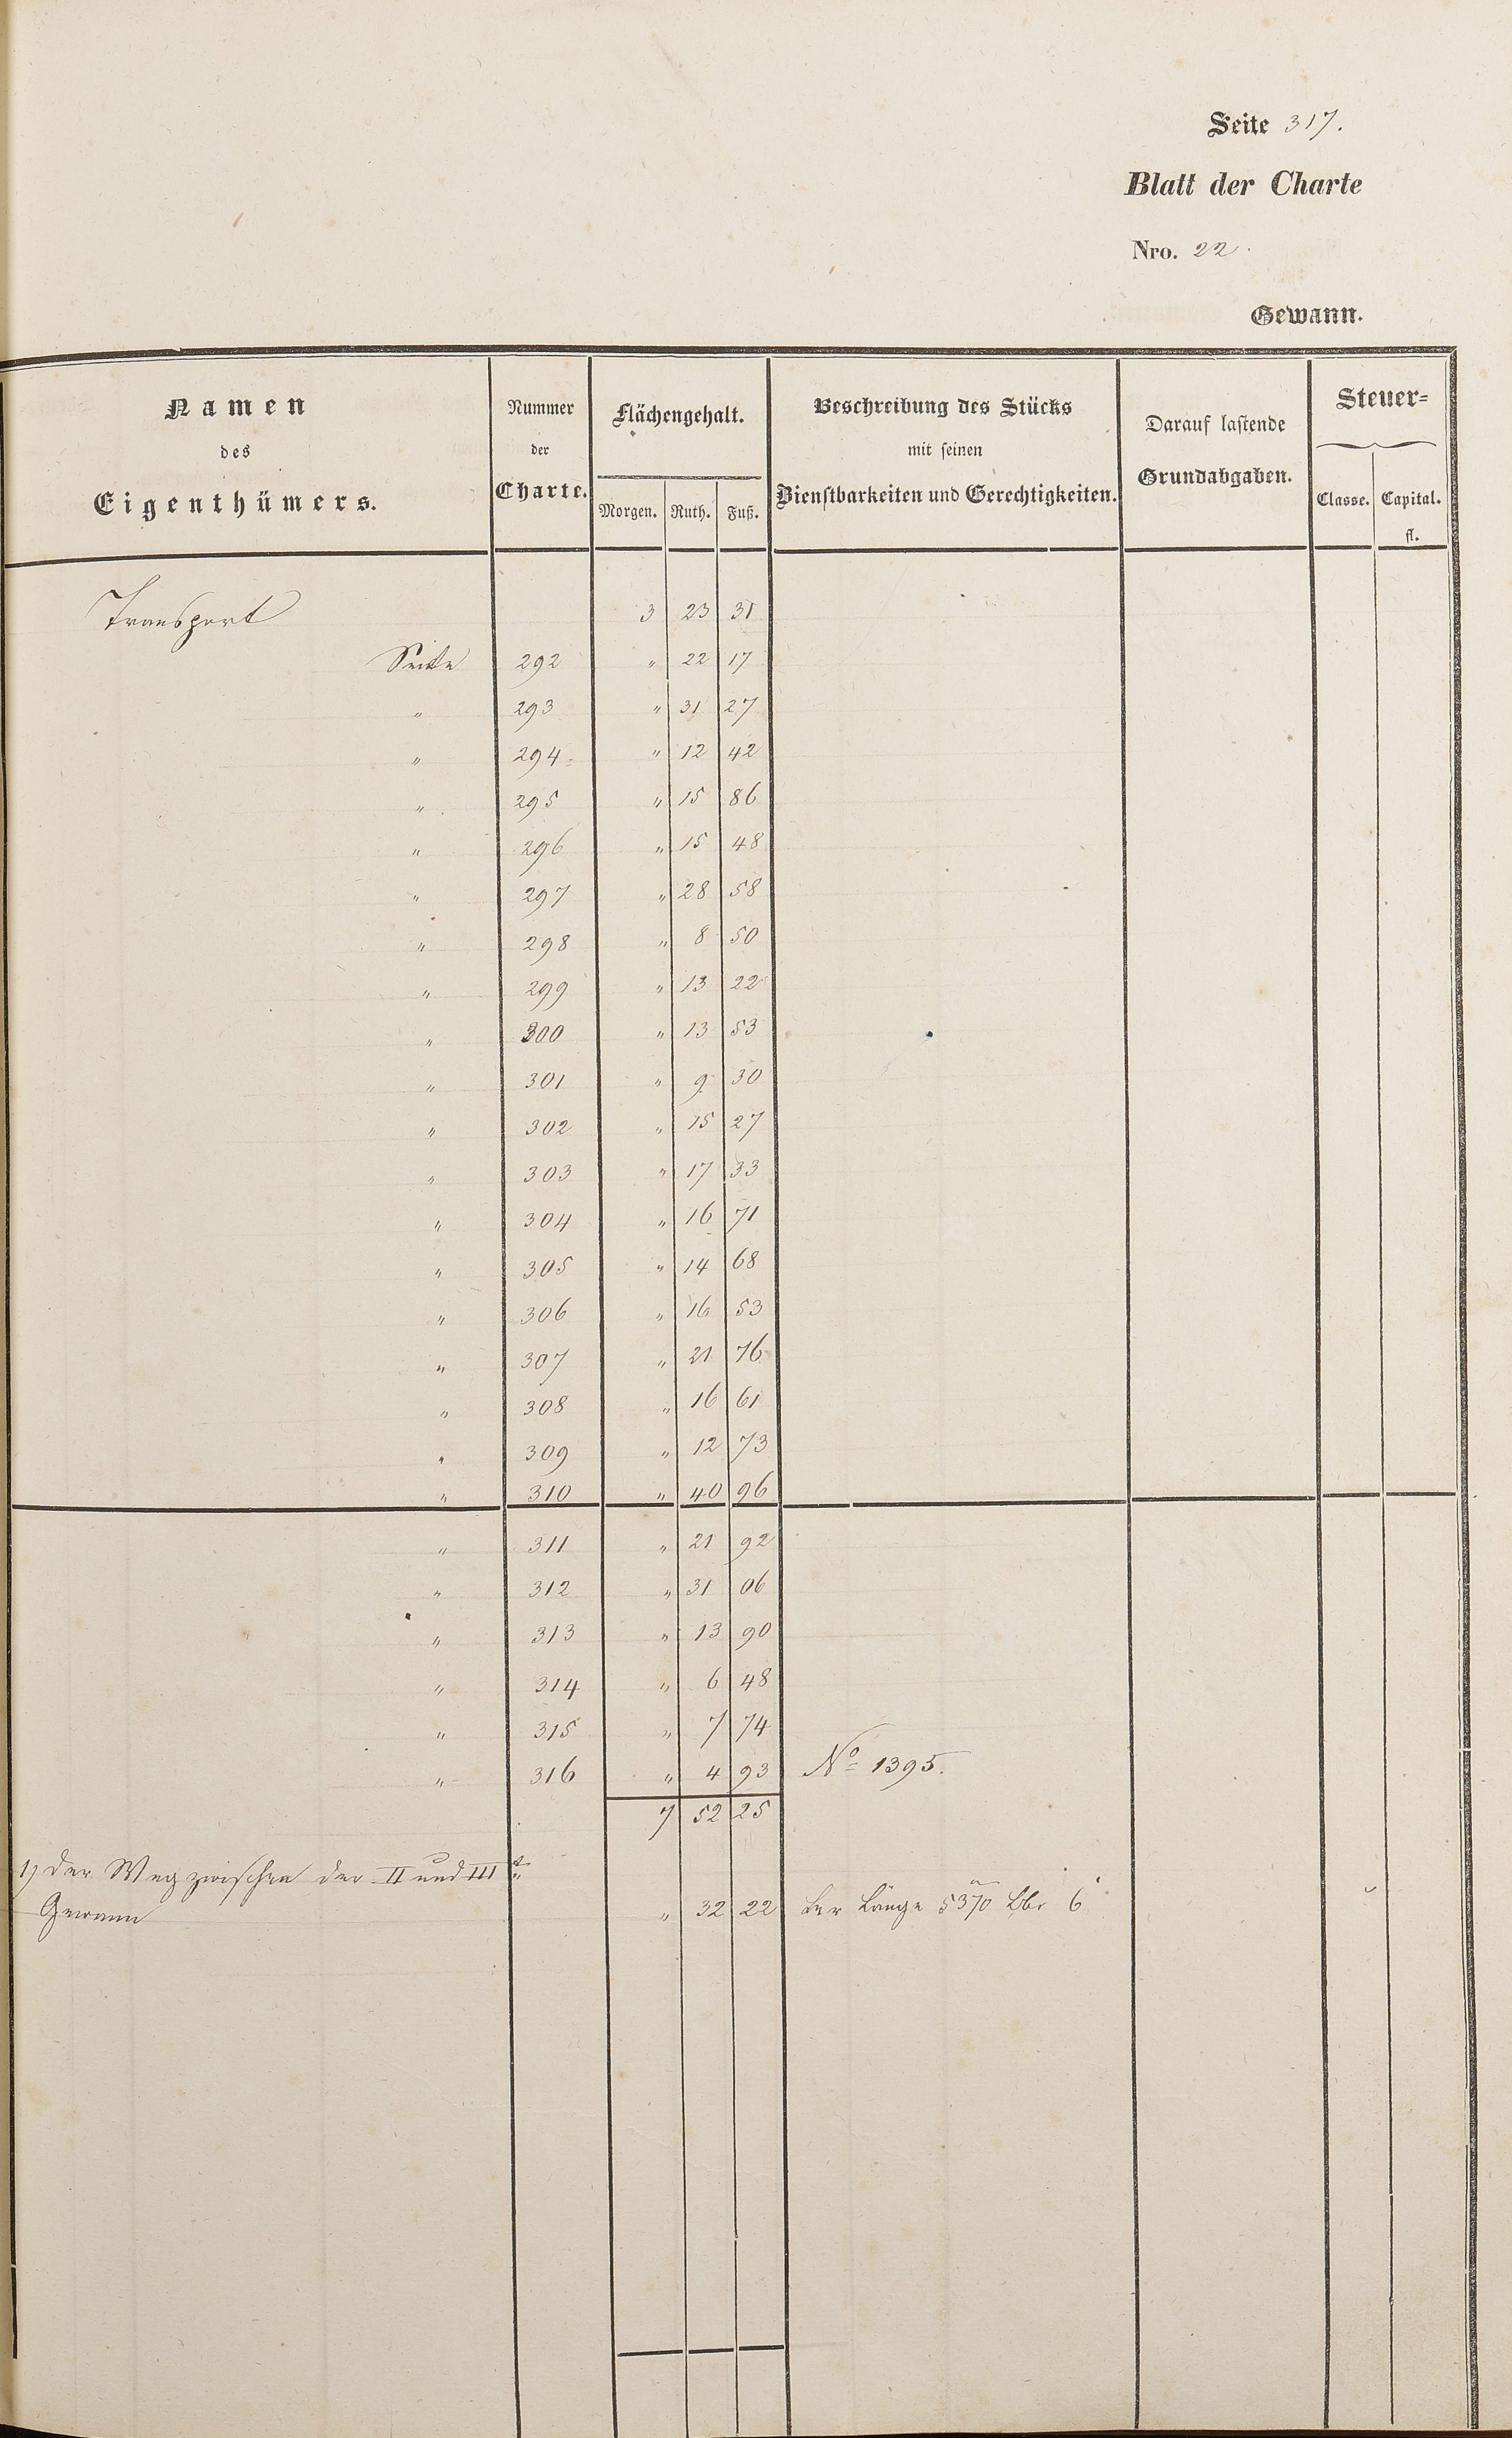 Seite 317.
Blatt der Charte
Nro. 22.
Gewann.
Namen des Eigenthümers.
Nummer der Charte.
Flächengehalt.
Morgen. Ruth. Fuß.
Beschreibung des Stücks mit seinen Dienstbarkeiten und Gerechtigkeiten.
Darauf lastende Grundabgaben.
Steuer=
Classe. Capital.
fl.
Transport 3 23 31
Seite 292 " 22 17
" 293 " 31 27
" 294 " 12 42
" 295 " 15 86
" 296 " 15 48
" 297 " 28 58
" 298 " 8 50
" 299 " 13 22
" 300 " 13 53
" 301 " 9 30
" 302 " 15 27
" 303 " 17 33
" 304 " 16 71
" 305 " 14 68
" 306 " 16 53
" 307 " 21 76
" 308 " 16 61
" 309 " 12 73
" 310 " 40 96
" 311 " 21 92
" 312 " 31 06
" 313 " 13 90
" 314 " 6 48
" 315 " 7 74
" 316 " 4 93 No 1395.
7 52 25
1) der Weg zwischen der II und III t
Gewann " 32 22 der Länge 5370 6